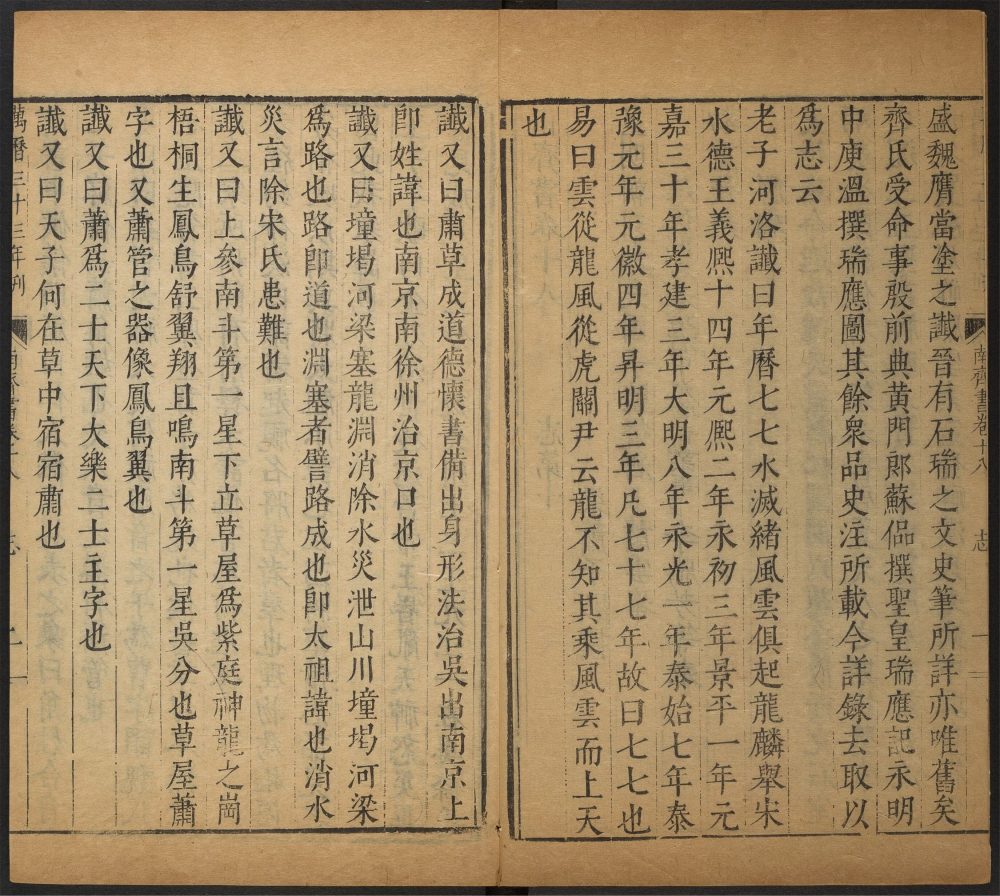 南齊書卷十八 志 二
盛魏膺當塗之讖晉有石瑞之文史筆所詳亦唯舊矣
齊氏受命事殷前典黃門郎蘇偘撰聖皇瑞應記永明
中庾溫撰瑞應圖其餘衆品史注所載今詳錄去取以
爲志云
老子河洛讖曰年曆七七水滅緒風雲俱起龍麟舉宋
水德王義熙十四年元熙二年永初三年景平一年元
嘉三十年孝建三年大明八年永光一年泰始七年泰
豫元年元徽四年昇明三年凡七十七年故曰七七也
易曰雲從龍風從虎關尹云龍不知其乘風雲而上天
也
讖又曰肅草成道德懷書備出身形法治吳出南京上
卽姓諱也南京南徐州治京口也
讖又曰壃堨河梁塞龍淵消除水災泄山川壃堨河梁
爲路也路卽道也淵塞者譬路成也卽太祖諱也消水
災言除宋氏患難也
讖又曰上參南斗第一星下立草屋爲紫庭神龍之崗
梧桐生鳳鳥舒翼翔且鳴南斗第一星吳分也草屋蕭
字也又蕭管之器像鳳鳥翼也
讖又曰蕭爲二士天下大樂二士主字也
讖又曰天子何在草中宿宿肅也
萬曆三十三年刊 南齊書卷十八 志